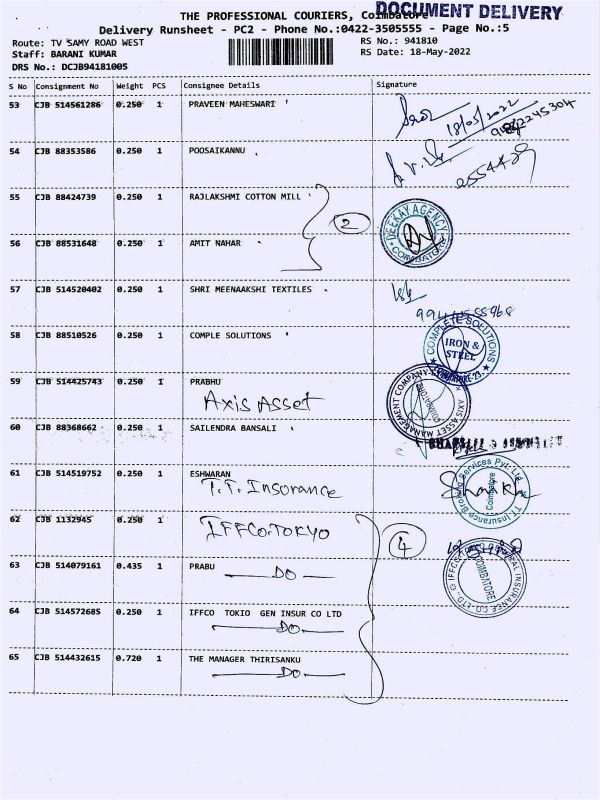 DOCUMENT DELIVERY
THE PROFESSIONAL COURIERS, Coimbatore
Delivery Runsheet - PC2 - Phone No.:0422-3505555 - Page No.:5
Route: TV SAMY ROAD WEST
RS No.: 941810
Staff: BARANI KUMAR
RS Date: 18-May-2022
DRS No.: DCJB94181005
S No Consignment No Weight PCS Consignee Details Signature
53 CJB 514561286 0.250 1 PRAVEEN MAHESWARI
18/05/2022
54 CJB 88353586 0.250 1 POOSAIKANNU
55 CJB 88424739 0.250 1 RAJLAKSHMI COTTON MILL
2
DEEKAY AGENCY
COIMBATORE
56 CJB 88531648 0.250 1 AMIT NAHAR
57 CJB 514520402 0.250 1 SHRI MEENAAKSHI TEXTILES
58 CJB 88510526 0.250 1 COMPLE SOLUTIONS
COMPLETE SOLUTIONS
IRON &
STEEL
59 CJB 514425743 0.250 1 PRABHU
Axis Asset
AXIS ASSET MANAGEMENT COMPANY
60 CJB 88368662 0.250 1 SAILENDRA BANSALI
61 CJB 514519752 0.250 1 ESHWARAN
T.T. Insurance
T.T. Insurance Broking Services Pvt. Ltd.
Coimbatore
62 CJB 1132945 0.250 1
IFFCO.TOKYO
4
63 CJB 514079161 0.435 1 PRABU
DO
COIMBATORE
64 CJB 514572685 0.250 1 IFFCO TOKIO GEN INSUR CO LTD
DO
65 CJB 514432615 0.720 1 THE MANAGER THIRISANKU
DO